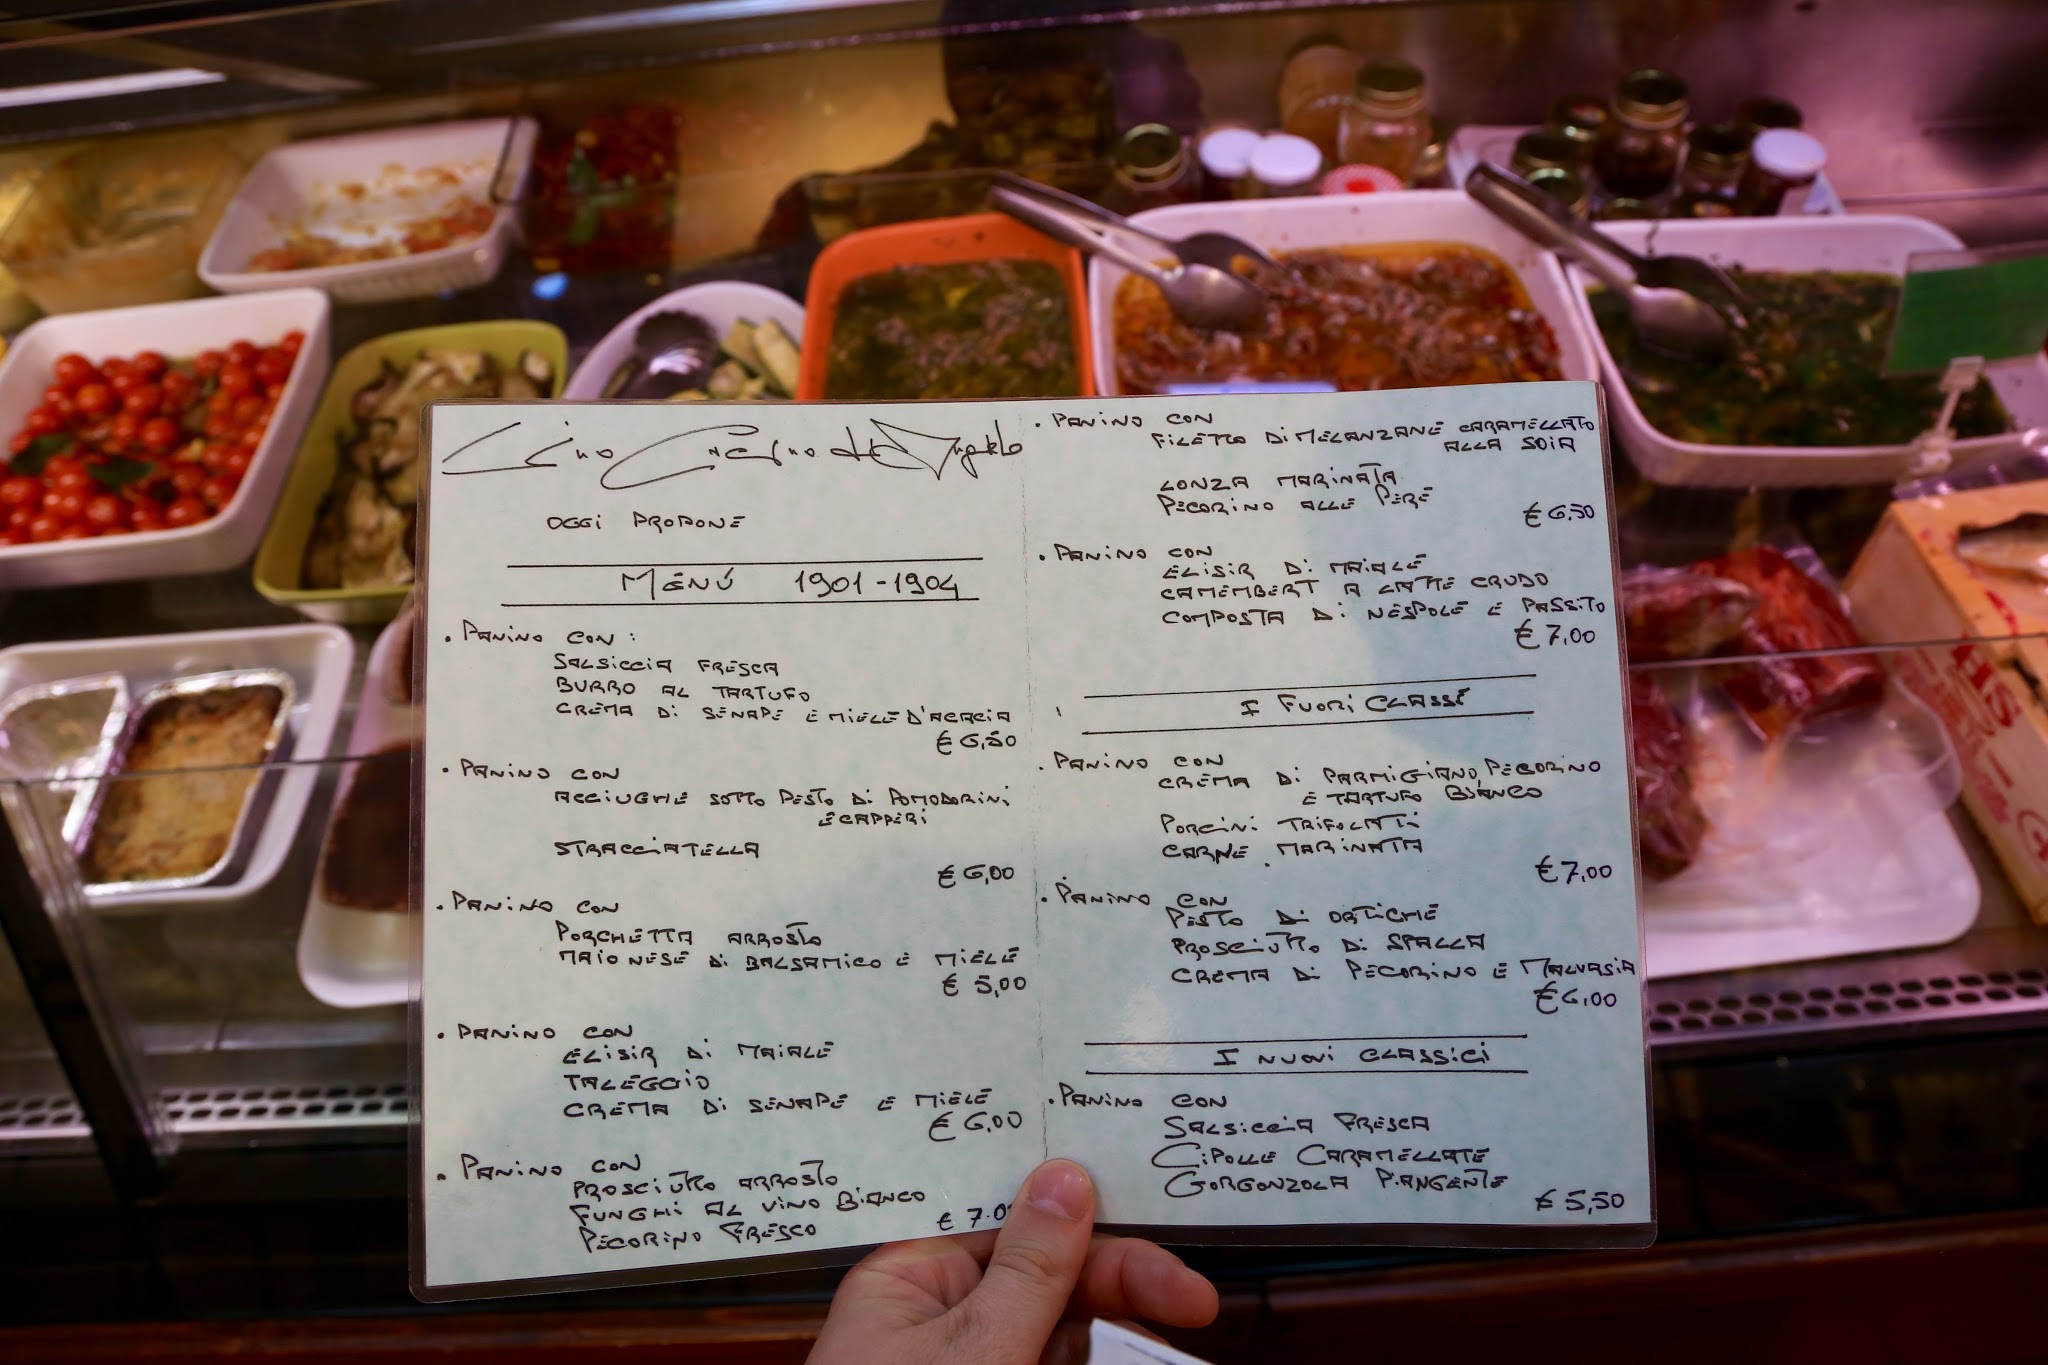 Lino
OGGI PROPONE
MENÚ 1901-1904
. PANINO CON :
SALSICCIA FRESCA
BURRO AL TARTUFO
CREMA DI SENAPE E MIELE D'ACACIA
€ 6,50
. PANINO CON
ACCIUGHE SOTTO PESTO DI POMODORINI
E CAPPERI
STRACCIATELLA
€ 6,00
. PANINO CON
PORCHETTA ARROSTO
MAIONESE DI BALSAMICO E MIELE
€ 5,00
. PANINO CON
ELISIR DI MAIALE
TALEGGIO
CREMA DI SENAPE E MIELE
€ 6,00
. PANINO CON
PROSCIUTTO ARROSTO
FUNGHI AL VINO BIANCO
PECORINO FRESCO
€ 7.0
. PANINO CON
FILETTO DI MELANZANE CARAMELLATO
ALLA SOIA
LONZA MARINATA
PECORINO ALLE PERE
€ 6.50
. PANINO CON
ELISIR DI MAIALE
CAMEMBERT A LATTE CRUDO
COMPOSTA DI NESPOLE E PASSITO
€ 7,00
I FUORI CLASSE
. PANINO CON
CREMA DI PARMIGIANO, PECORINO
E TARTUFO BIANCO
PORCINI TRIFOLATI
CARNE MARINATA
€ 7,00
. PANINO CON
PESTO DI ORTICHE
PROSCIUTTO DI SPALLA
CREMA DI PECORINO E MALVASIA
€ 6,00
I NUOVI CLASSICI
. PANINO CON
SALSICCIA FRESCA
CIPOLLE CARAMELLATE
GORGONZOLA PIANGENTE
€ 5,50